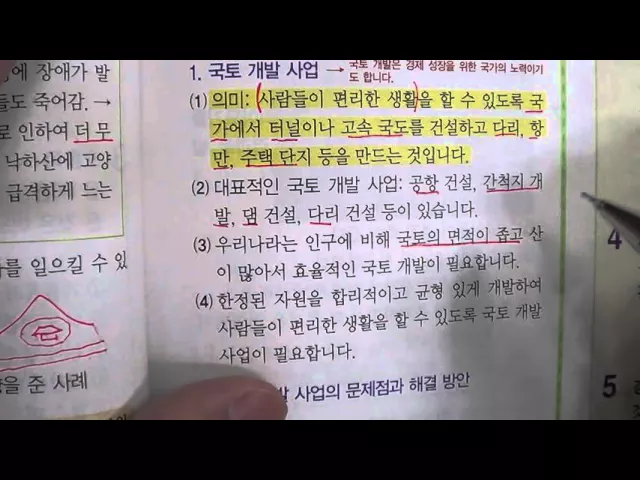 에 장애가 발
들도 죽어감. →
로 인하여 더 무
낙하산에 고양
급격하게 느는
를 일으킬 수 있
을 준 사례
1. 국토 개발 사업 → 국토 개발은 경제 성장을 위한 국가의 노력이기
도 합니다.
(1) 의미: 사람들이 편리한 생활을 할 수 있도록 국
가에서 터널이나 고속 국도를 건설하고 다리, 항
만, 주택 단지 등을 만드는 것입니다.
(2) 대표적인 국토 개발 사업: 공항 건설, 간척지 개
발, 댐 건설, 다리 건설 등이 있습니다.
(3) 우리나라는 인구에 비해 국토의 면적이 좁고 산
이 많아서 효율적인 국토 개발이 필요합니다.
(4) 한정된 자원을 합리적이고 균형 있게 개발하여
사람들이 편리한 생활을 할 수 있도록 국토 개발
사업이 필요합니다.
발 사업의 문제점과 해결 방안
4
5